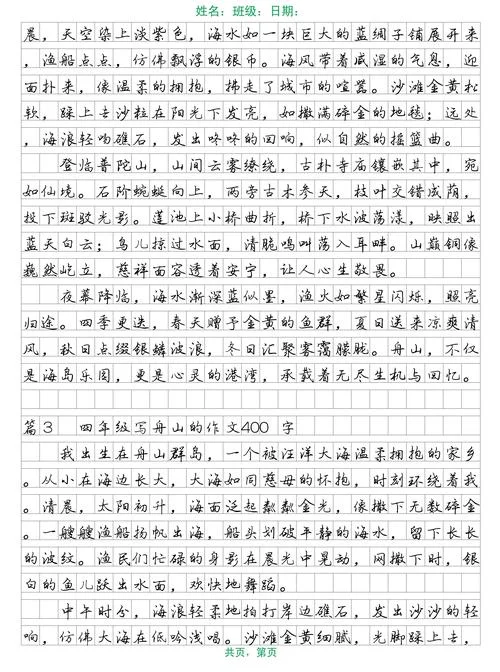 姓名：班级：日期：
晨，天空染上淡紫色，海水如一块巨大的蓝绸子铺展开来
，渔船点点，仿佛飘浮的银币。海风带着咸湿的气息，迎
面扑来，像温柔的拥抱，拂走了城市的喧嚣。沙滩金黄松
软，踩上去沙粒在阳光下发亮，如撒满碎金的地毯；远处
，海浪轻吻礁石，发出咚咚的回响，似自然的摇篮曲。
登临普陀山，山间云雾缭绕，古朴寺庙镶嵌其中，宛
如仙境。石阶蜿蜒向上，两旁古木参天，枝叶交错成荫，
投下斑驳光影。莲池上小桥曲折，桥下水波荡漾，映照出
蓝天白云；鸟儿掠过水面，清脆鸣叫荡入耳畔。山巅铜像
巍然屹立，慈祥面容透着安宁，让人心生敬畏。
夜幕降临，海水渐深蓝似墨，渔火如繁星闪烁，照亮
归途。四季更迭，春天赠予金黄的鱼群，夏日送来凉爽清
风，秋日点缀银鳞波浪，冬日汇聚雾霭朦胧。舟山，不仅
是海岛乐园，更是心灵的港湾，承载着无尽生机与回忆。
篇3 四年级写舟山的作文400 字
我出生在舟山群岛，一个被汪洋大海温柔拥抱的家乡
。从小在海边长大，大海如同慈母的怀抱，时刻环绕着我
。清晨，太阳初升，海面泛起粼粼金光，像撒下无数碎金
。一艘艘渔船扬帆出海，船头划破平静的海水，留下长长
的波纹。渔民们忙碌的身影在晨光中晃动，网撒下时，银
白的鱼儿跃出水面，欢快地舞蹈。
中午时分，海浪轻柔地拍打岸边礁石，发出沙沙的轻
响，仿佛大海在低吟浅唱。沙滩金黄细腻，光脚踩上去，
共页，第页